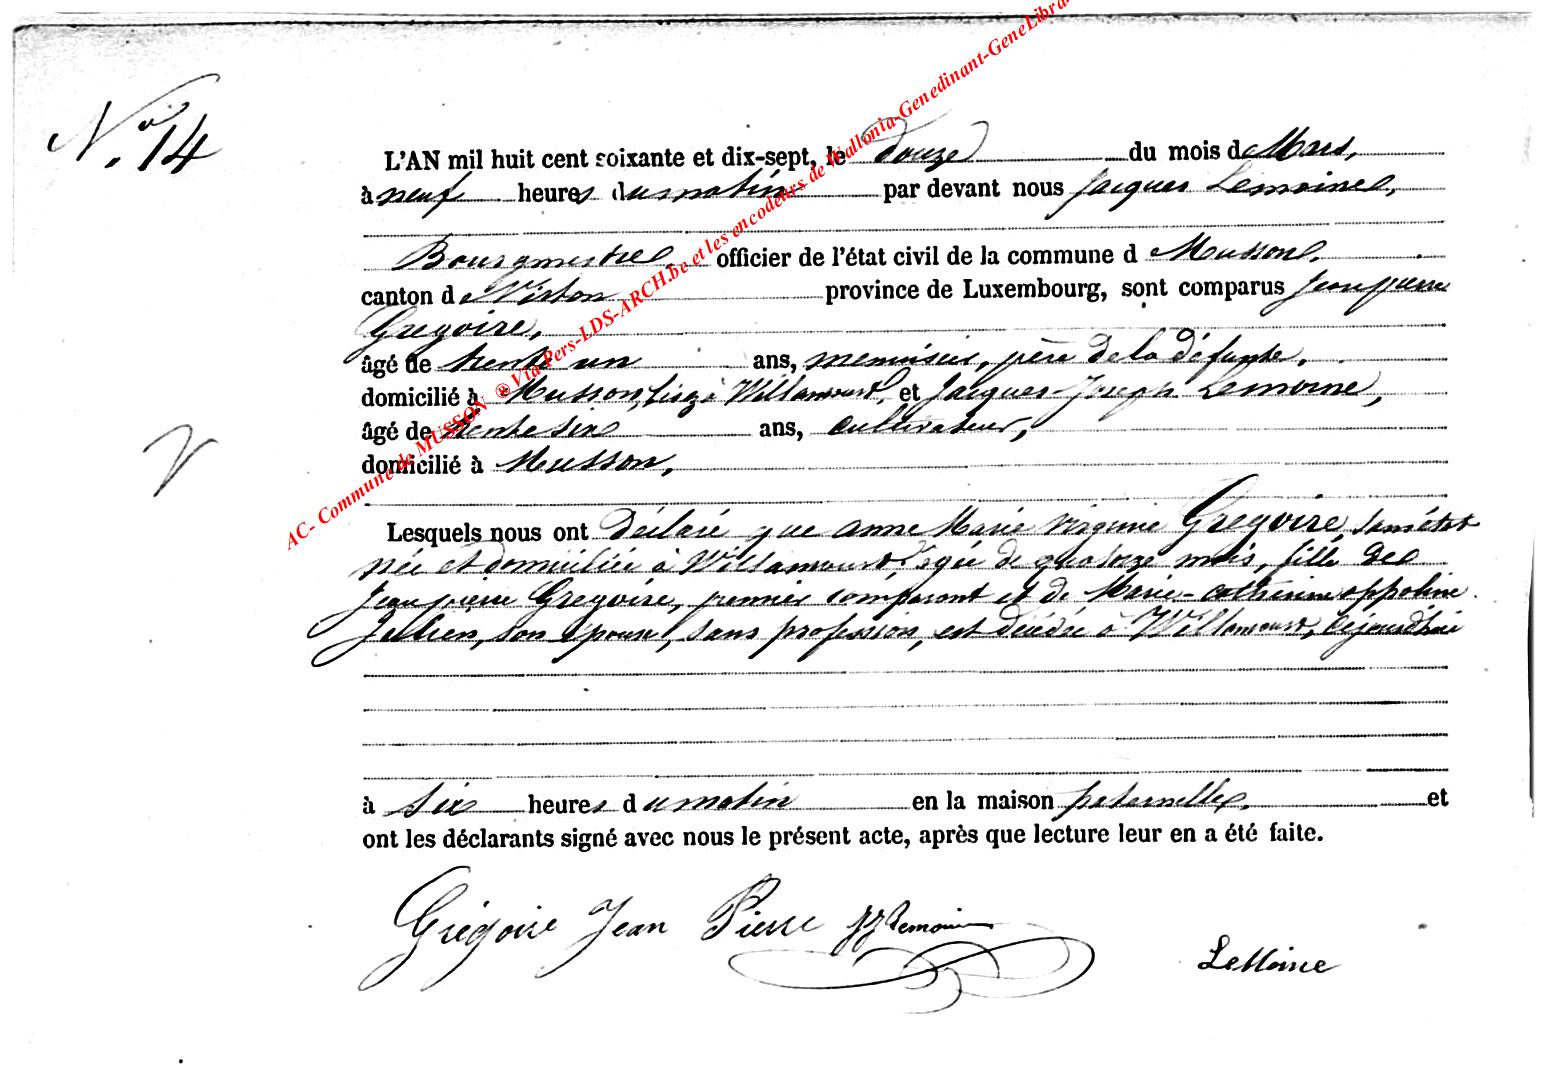 N.º 14
L'AN mil huit cent soixante et dix-sept, le Douze du mois de Mars,
à neuf heures du matin par devant nous Jacques Lemoine,
Bourgmestre, officier de l'état civil de la commune d Musson,
canton de Virton province de Luxembourg, sont comparus Jean pierre
Gregoire,
âgé de trente un ans, menuisier, père de la défunte,
domicilié à Musson, à Willancourt, et Jacques Joseph Lemoine,
âgé de trente six ans, cultivateur,
domicilié à Musson,
Lesquels nous ont déclaré que anne Marie Virginie Gregoire, sans état
née et domiciliée à Willancourt, agée de quatorze mois, fille de
Jean pierre Gregoire, premier comparant et de Marie-catherine appoline
son épouse, sans profession, est décédée à Willancourt, cejourd'hui
à six heures du matin en la maison paternelle, et
ont les déclarants signé avec nous le présent acte, après que lecture leur en a été faite.
Grégoire Jean Pierre JJ Lemoine
LeMoine
AC- Commune de MUSSON @ Via Pers-LDS-ARCH.be et les encodeurs de Wallonia-Genedinant-GeneLibra